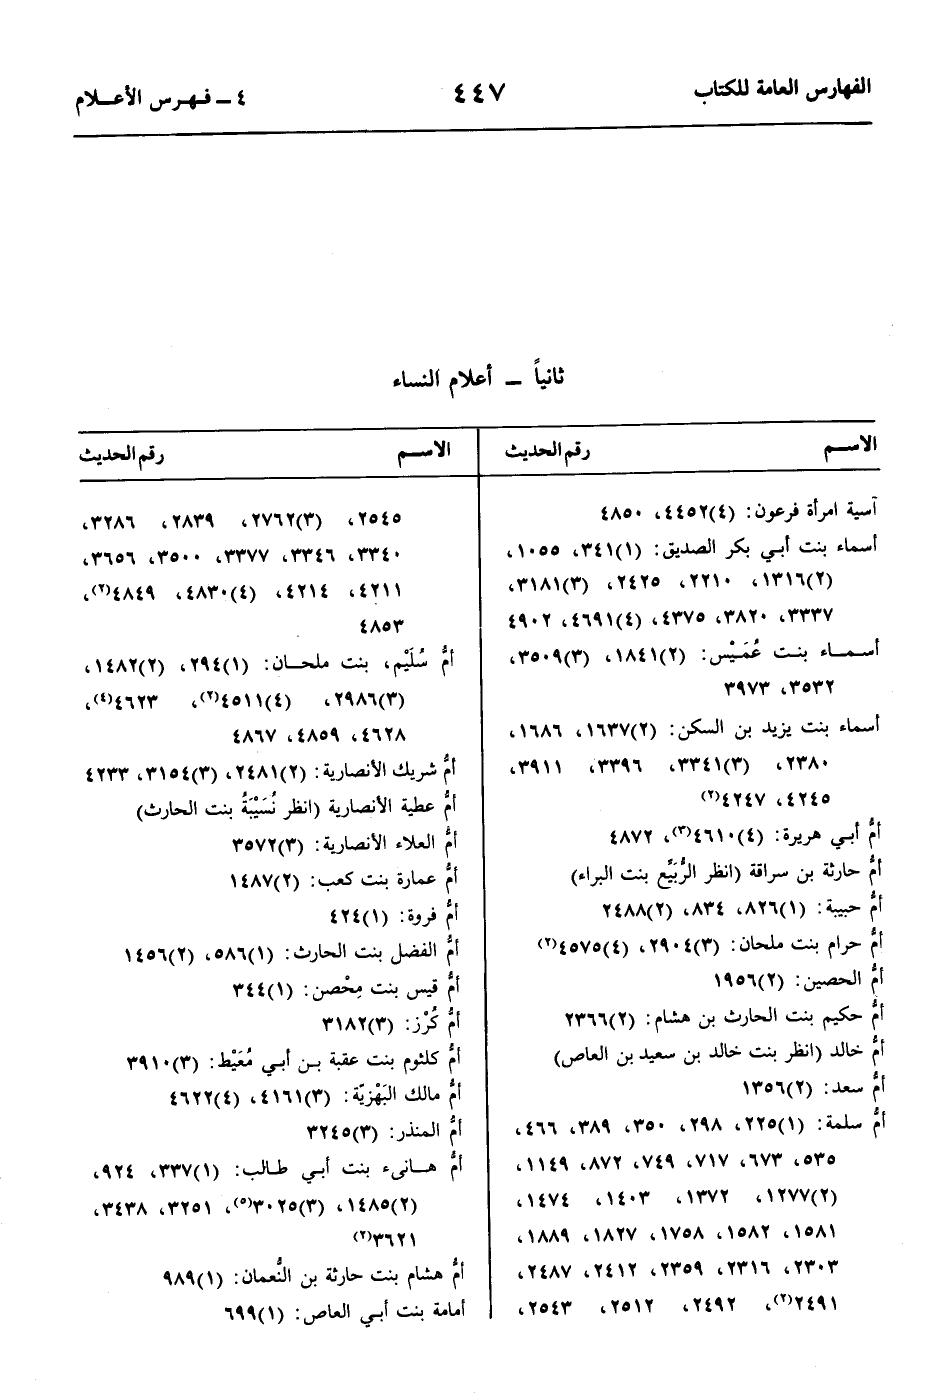 الفهارس العامة للكتاب ٤٤٧ ٤ ــ فـهـرس الأعــلام
ثانياً ــ أعلام النساء
الاســم رقم الحديث
آسية امرأة فرعون: (٤)٤٤٥٢، ٤٨٥٠
أسماء بنت أبي بكر الصديق: (١)٣٤١، ١٠٥٥،
(٢)١٣١٦، ٢٢١٠، ٢٤٢٥، (٣)٣١٨١،
٣٣٣٧، ٣٨٢٠، ٤٣٧٥، (٤)٤٦٩١، ٤٩٠٢
أسـمـاء بنـت عُمَيْس: (٢)١٨٤١، (٣)٣٥٠٩،
٣٥٣٢، ٣٩٧٣
أسماء بنت يزيد بن السكن: (٢)١٦٣٧، ١٦٨٦،
٢٣٨٠، (٣)٣٣٤١، ٣٣٩٦، ٣٩١١،
٤٢٤٥، ٤٢٤٧(٢)
أمُّ أبي هريرة: (٤)٤٦١٠(٣)، ٤٨٧٢
أمُّ حارثة بن سراقة (انظر الرُّبَيِّع بنت البراء)
أمُّ حبيبة: (١)٨٢٦، ٨٣٤، (٢)٢٤٨٨
أمُّ حرام بنت ملحان: (٣)٢٩٠٤، (٤)٤٥٧٥(٢)
أمُّ الحصين: (٢)١٩٥٦
أمُّ حكيم بنت الحارث بن هشام: (٢)٢٣٦٦
أمُّ خالد (انظر بنت خالد بن سعيد بن العاص)
أمُّ سعد: (٢)١٣٥٦
أمُّ سلمة: (١)٢٢٥، ٢٩٨، ٣٥٠، ٣٨٩، ٤٦٦،
٥٣٥، ٦٧٣، ٧١٧، ٧٤٩، ٨٧٢، ١١٤٩،
(٢)١٢٧٧، ١٣٧٢، ١٤٠٣، ١٤٧٤،
١٥٨١، ١٥٨٢، ١٧٥٨، ١٨٢٧، ١٨٨٩،
٢٣٠٣، ٢٣١٦، ٢٣٥٩، ٢٤١٢، ٢٤٨٧،
٢٤٩١(٢)، ٢٤٩٢، ٢٥١٢، ٢٥٤٣،
الاســم رقم الحديث
٢٥٤٥، (٣)٢٧٦٢، ٢٨٣٩، ٣٢٨٦،
٣٣٤٠، ٣٣٤٦، ٣٣٧٧، ٣٥٠٠، ٣٦٥٦،
٤٢١١، ٤٢١٤، (٤)٤٨٣٠، ٤٨٤٩(٢)،
٤٨٥٣
أمُّ سُلَيْم، بنت ملحـان: (١)٢٩٤، (٢)١٤٨٢،
(٣)٢٩٨٦، (٤)٤٥١١(٢)، ٤٦٢٣(٤)،
٤٦٢٨، ٤٨٥٩، ٤٨٦٧
أمُّ شريك الأنصارية: (٢)٢٤٨١، (٣)٣١٥٤، ٤٢٣٣
أمُّ عطية الأنصارية (انظر نُسَيْبَةُ بنت الحارث)
أمُّ العلاء الأنصارية: (٣)٣٥٧٢
أمُّ عمارة بنت كعب: (٢)١٤٨٧
أمُّ فروة: (١)٤٢٤
أمُّ الفضل بنت الحارث: (١)٥٨٦، (٢)١٤٥٦
أمُّ قيس بنت مِحْصن: (١)٣٤٤
أمُّ كُرْز: (٣)٣١٨٢
أمُّ كلثوم بنت عقبة بـن أبـي مُعَيْط: (٣)٣٩١٠
أمُّ مالك البَهْزيّة: (٣)٤١٦١، (٤)٤٦٢٢
أمُّ المنذر: (٣)٣٢٤٥
أمُّ هـانىء بنت أبي طالب: (١)٣٣٧، ٩٢٤،
(٢)١٤٨٥، (٣)٣٠٢٥(٥)، ٣٢٥١، ٣٤٣٨،
٣٦٢١(٢)
أمُّ هشام بنت حارثة بن النُّعمان: (١)٩٨٩
أمامة بنت أبي العاص: (١)٦٩٩